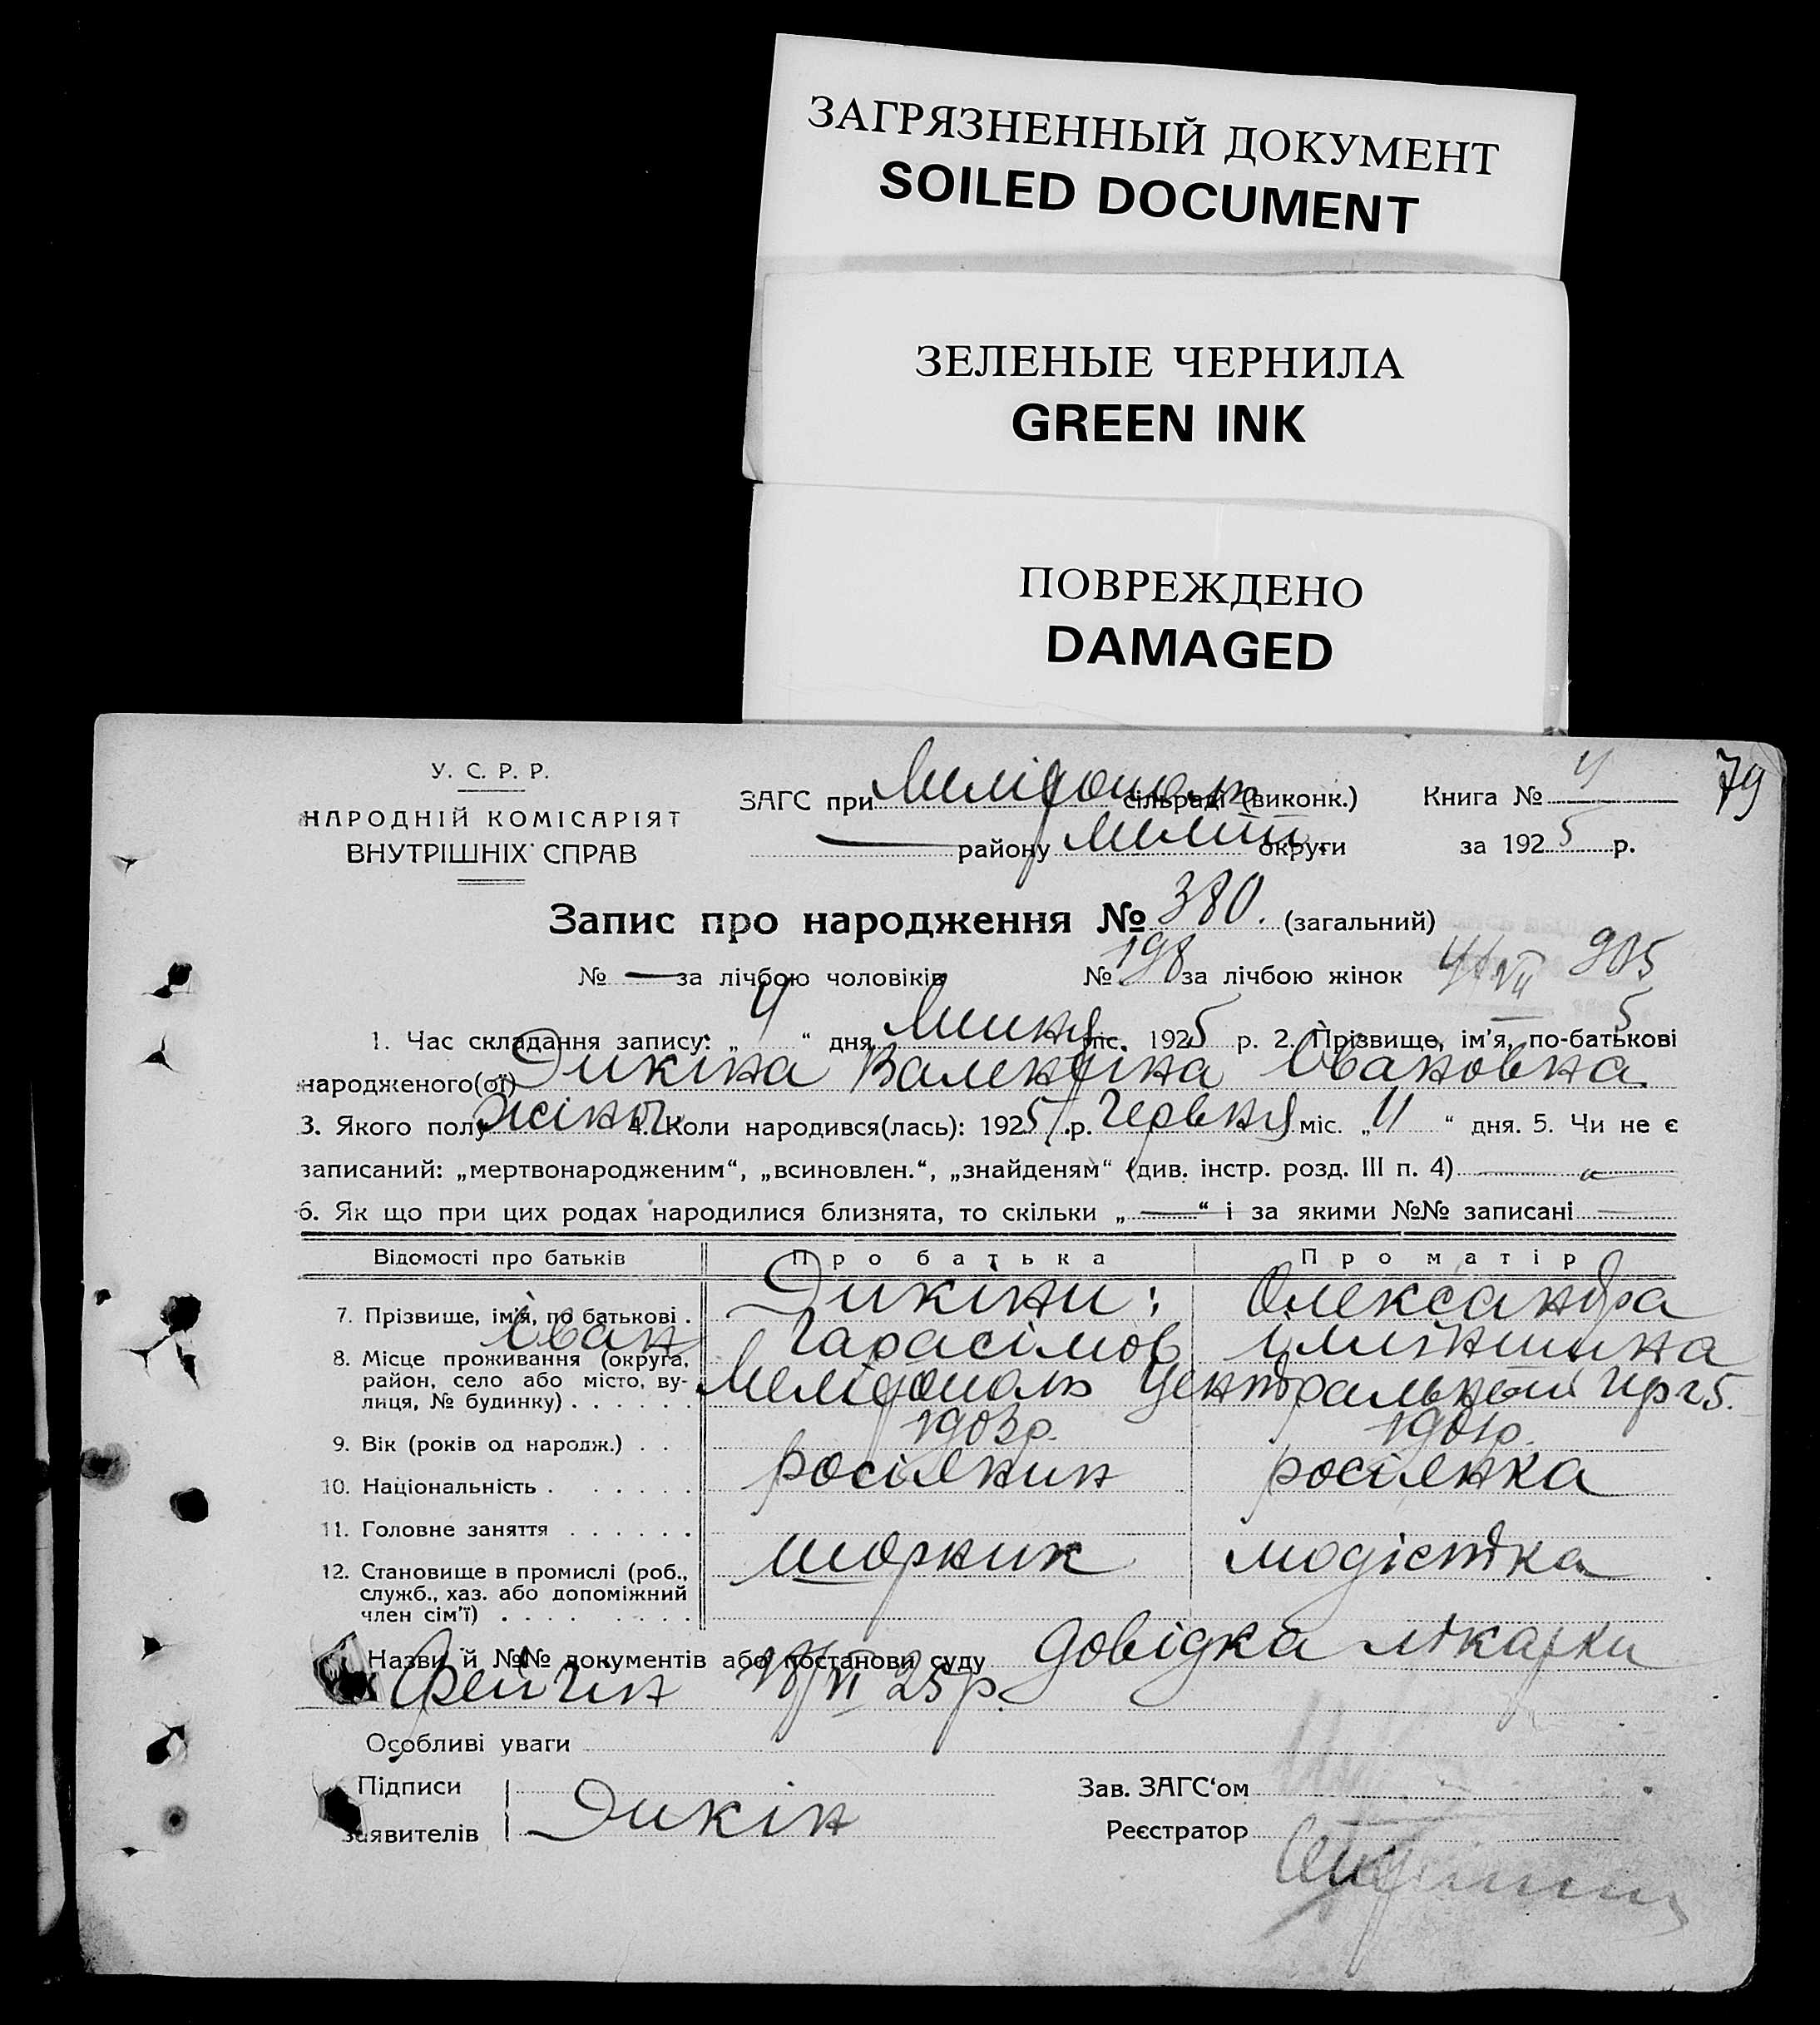 ЗАГРЯЗНЕННЫЙ ДОКУМЕНТ
SOILED DOCUMENT
ЗЕЛЕНЫЕ ЧЕРНИЛА
GREEN INK
ПОВРЕЖДЕНО
DAMAGED
79
У. С. Р. Р.
НАРОДНІЙ КОМІСАРІЯТ
ВНУТРІШНІХ СПРАВ
ЗАГС при Мелітополь сільраді (виконк.) Книга № 4
— району Меліт. округи за 1925 р.
Запис про народження № 380. (загальний)
№ — за лічбою чоловіків № 198 за лічбою жінок
1. Час складання запису: „ 4 “ дня Липня міс. 1925 р. 2. Прізвище, ім'я, по-батькові
народженого(ої) Дикіна Валентіна Івановна
3. Якого полу жіноч. 4. Коли народився(лась): 1925 р. Червня міс. „ 11 “ дня. 5. Чи не є
записаний: „мертвонародженим“, „всиновлен.“, „знайденям“ (див. інстр. розд. III п. 4)
6. Як що при цих родах народилися близнята, то скільки „ — “ і за якими №№ записані —
Відомості про батьків Про батька Про матір
7. Прізвище, ім'я, по батькові . Дикіни: Олександра
Іван Гарасімов
8. Місце проживання (округа,
район, село або місто, ву-
лиця, № будинку) . . . . . . Мелітополь Центральний
9. Вік (років од народж.) . . . 1903р. 1901р.
10. Національність . . . . . . росіянин росіянка
11. Головне заняття . . . . . .
12. Становище в промислі (роб.,
служб., хаз. або допоміжний
член сім'ї) . . . . . . . . шорник модістка
Назви й №№ документів або постанови суду довідка лікарки
Фейгін 18/VI 25р.
Особливі уваги
Підписи
заявителів Дикін
Зав. ЗАГС‘ом
Реєстратор